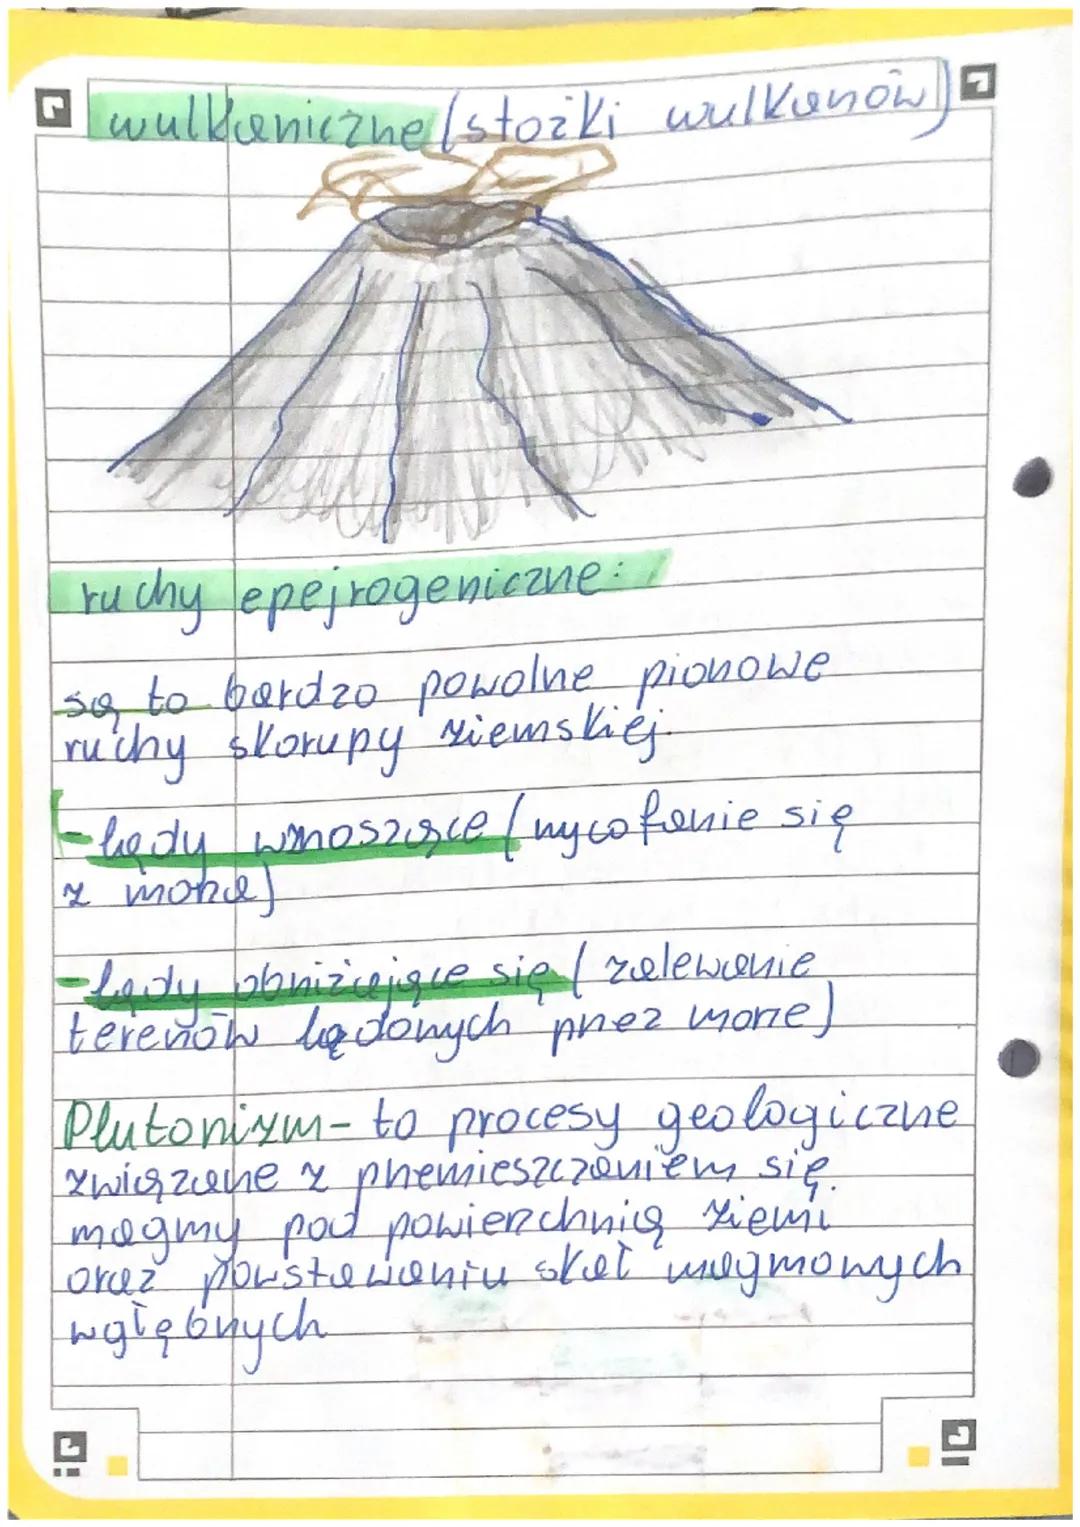 wulkaniczne (stożki wulkanów)
ruchy epejrogeniczne:
są to bardzo powolne pionowe
ruchy skorupy ziemskiej.
- lądy wznoszące (wycofanie się
z morza)
- lądy obniżające się (zalewanie
terenów lądowych przez morze)
Plutonizm - to procesy geologiczne
związane z przemieszczaniem się
magmy pod powierzchnią ziemi
oraz powstawaniu skał magmowych
wgłębnych